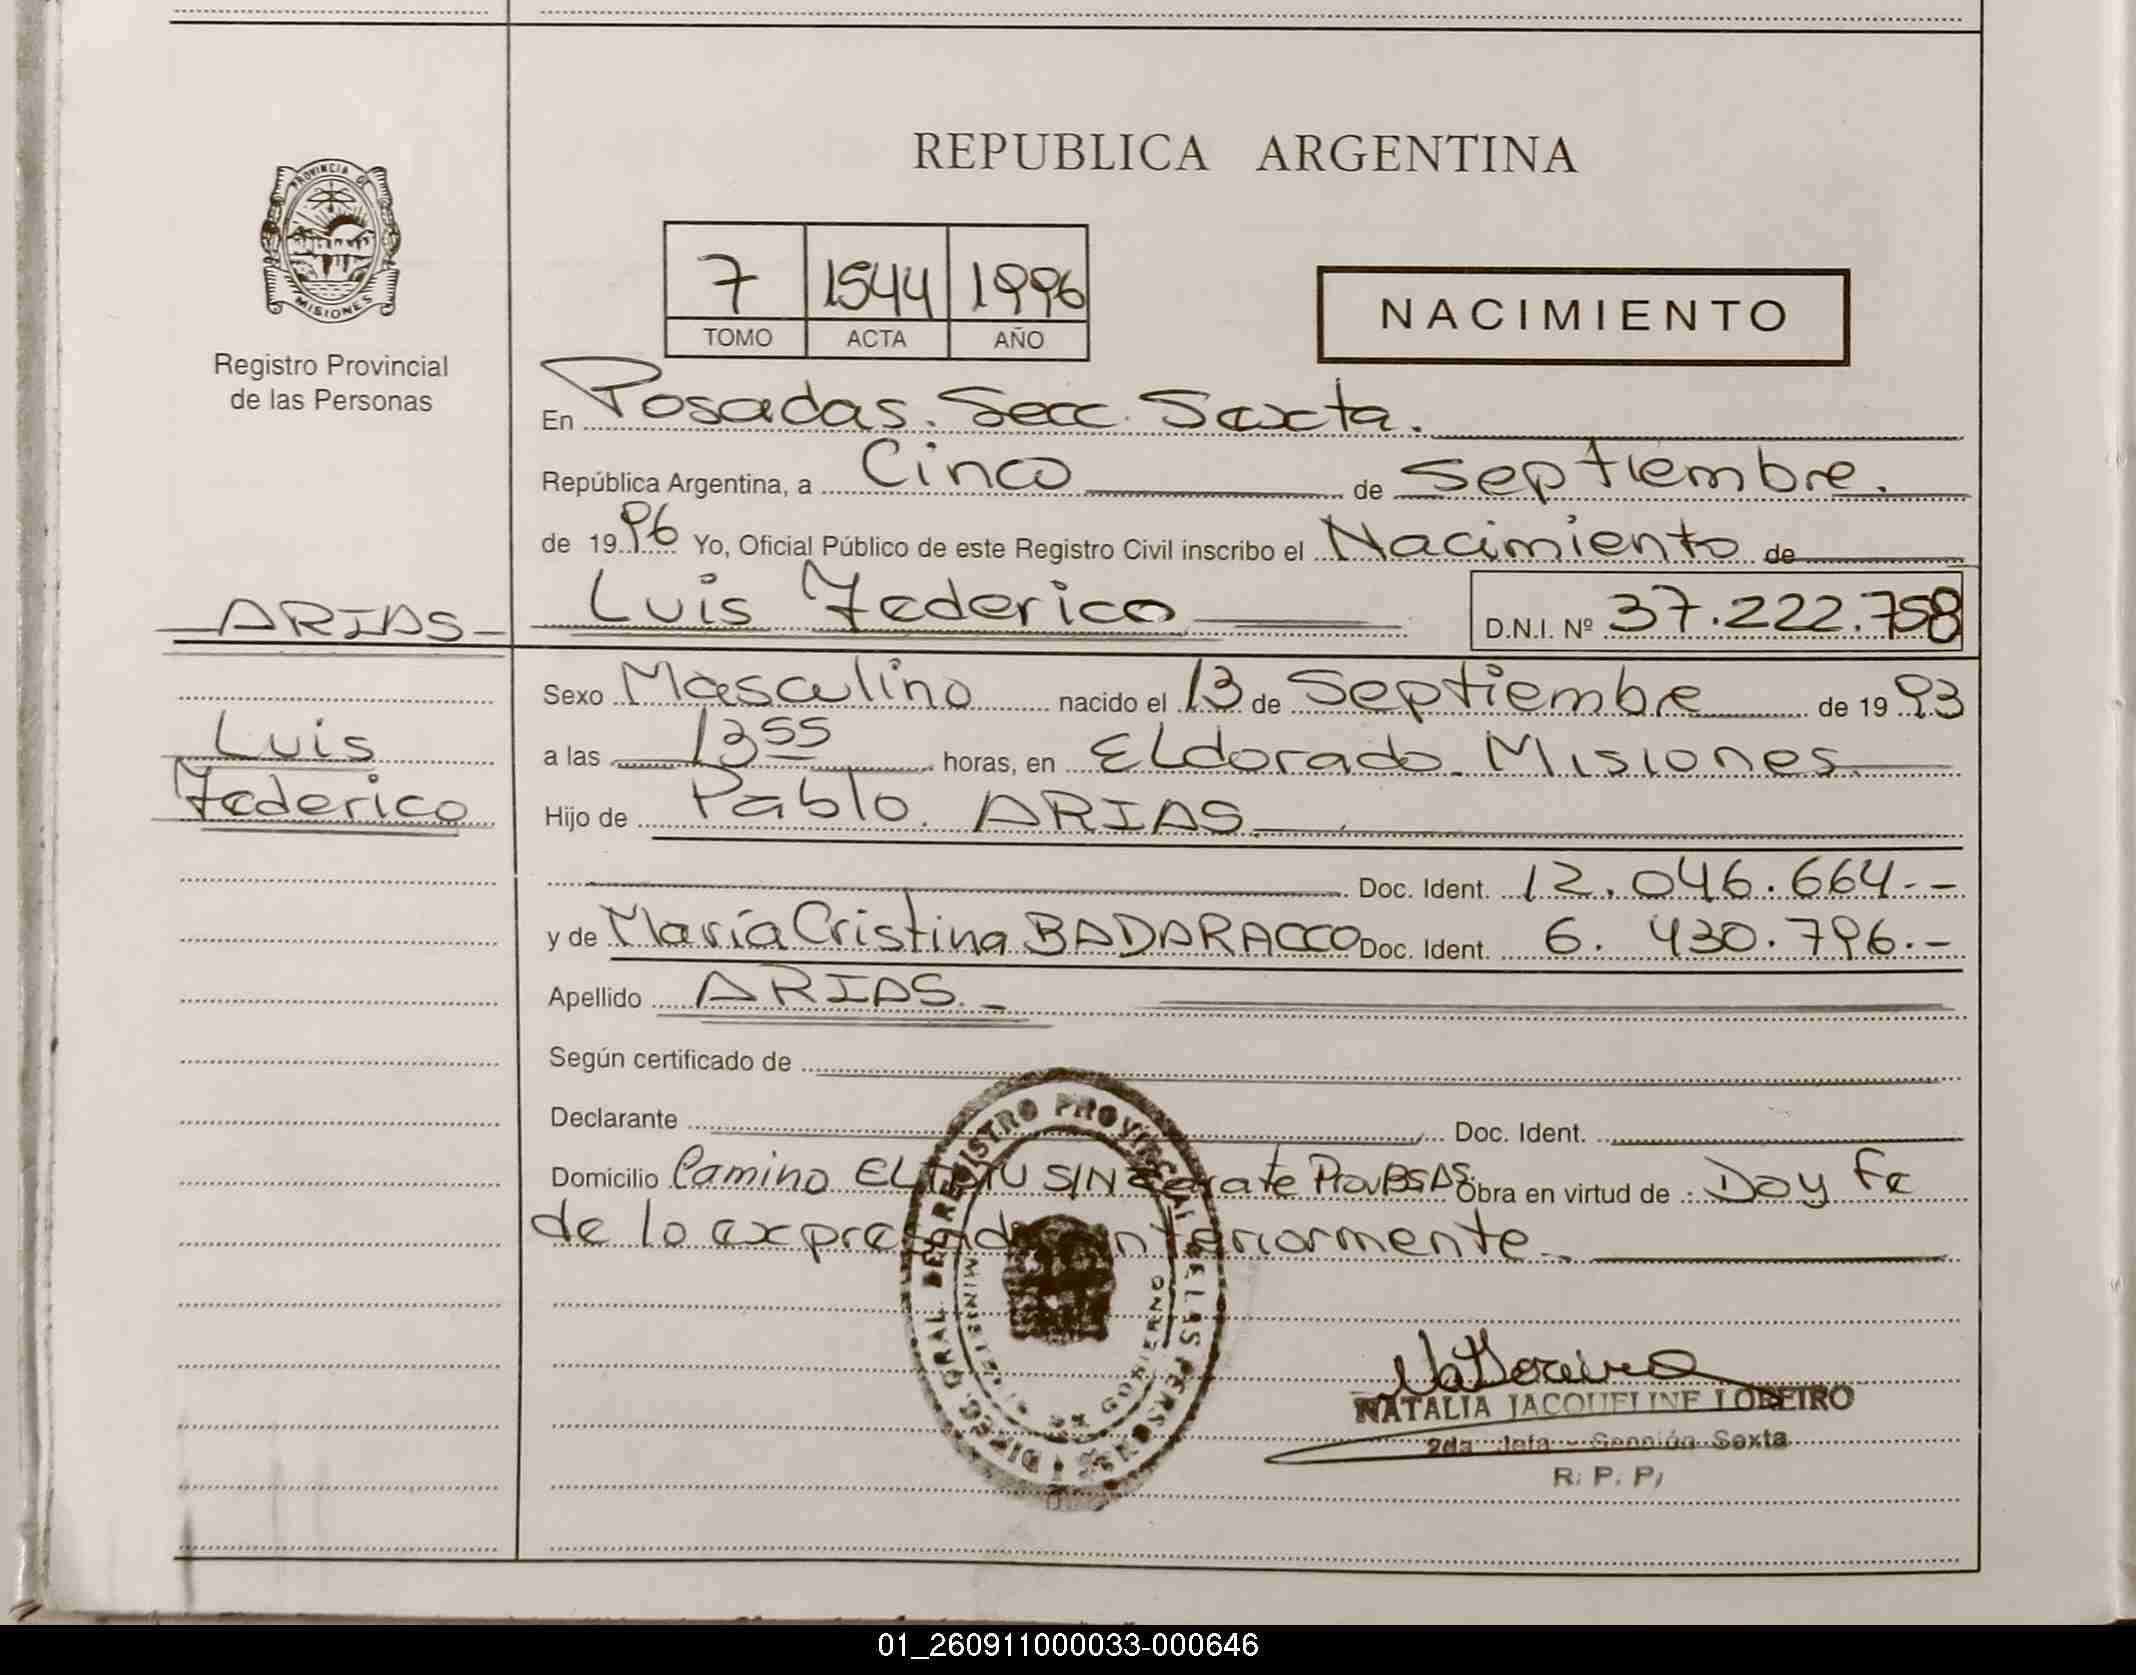 REPUBLICA ARGENTINA
PROVINCIA DE
MISIONES
Registro Provincial
de las Personas
7 1544 1996
TOMO ACTA AÑO
NACIMIENTO
En Posadas. Secc. Sexta.
República Argentina, a Cinco de Septiembre.
de 1996 Yo, Oficial Público de este Registro Civil inscribo el Nacimiento de
ARIAS
Luis Federico D.N.I. Nº 37.222.758
Sexo Masculino nacido el 13 de Septiembre de 1993
Luis
Federico
a las 13 55 horas, en ELdorado. Misiones
Hijo de Pablo. ARIAS
Doc. Ident. 12.046.664.--
y de María Cristina BADARACCO Doc. Ident. 6.430.796.-
Apellido ARIAS.-
Según certificado de
Declarante Doc. Ident.
Domicilio Camino EL S/N Zarate Prov BSAS Obra en virtud de : Doy Fe
de lo expresado anteriormente.
DIREC. GRAL. DEL REGISTRO PROVINCIAL DE LAS PERSONAS
MINISTERIO DE GOBIERNO
NATALIA JACQUELINE LOREIRO
2da. Jefa - Sección Sexta
R. P. P.
01_260911000033-000646